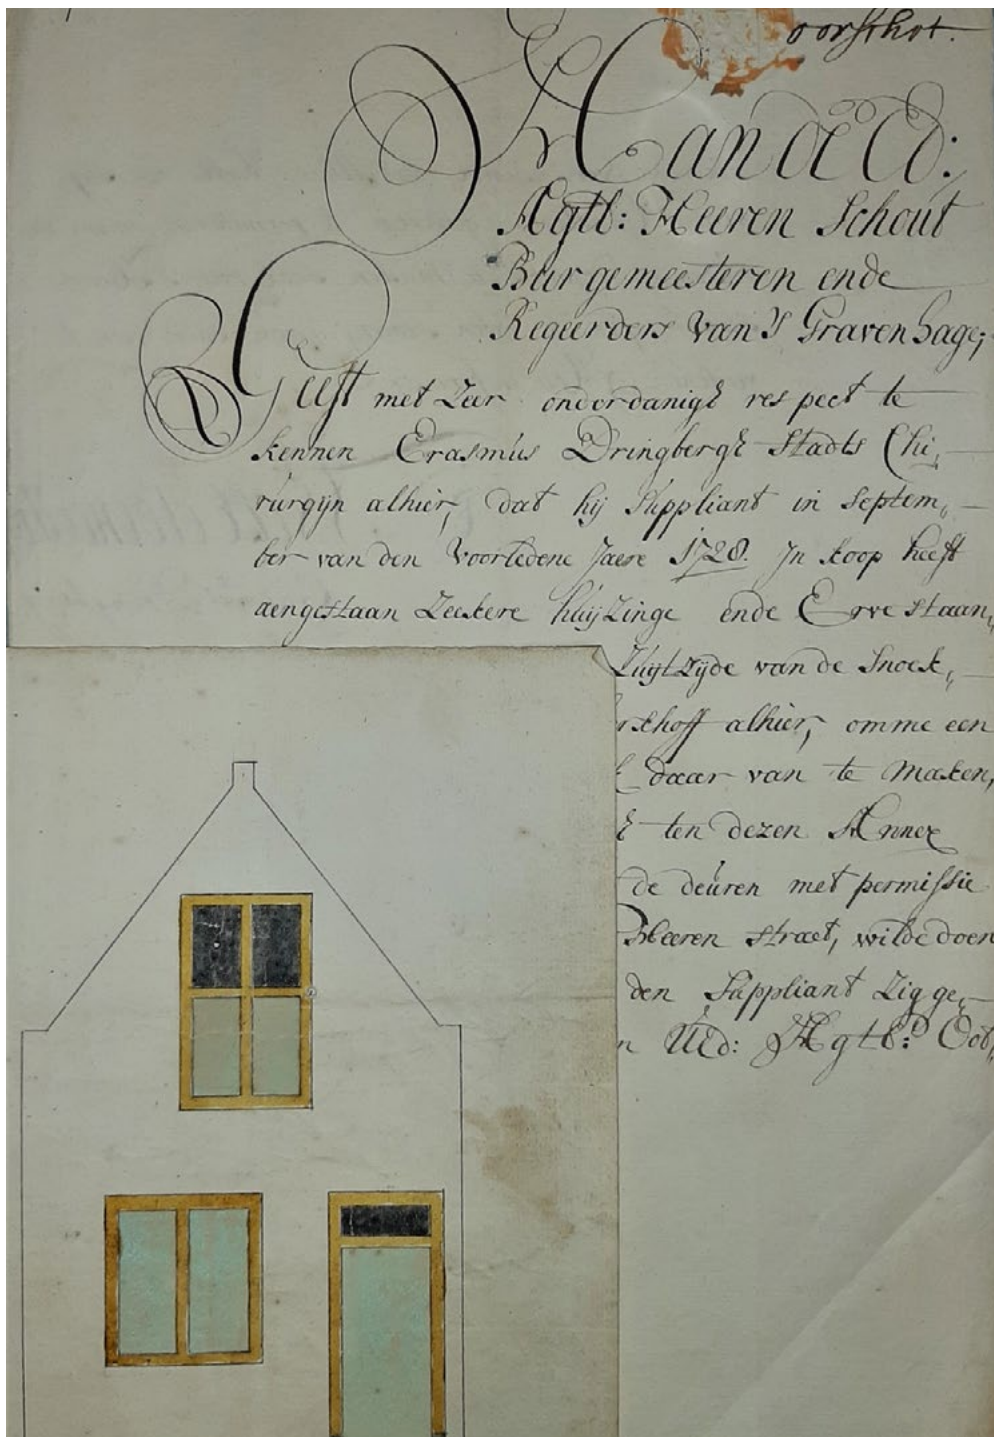 oorschot.
Aan de Ed:
Agtb: Heeren Schout
Burgemeesteren ende
Regeerders van 's Gravenhage;
Geeft met Zeer onderdanigh respect te
kennen Erasmus Dringbergh Stadts Chi,,
rurgijn alhier, dat hij Suppliant in Septem,,
ber van den Voorledene Jaere 1728. In koop heeft
aengestaan Zeekere huijzinge ende Erve staan,,
Zuijtzijde van de Snoek,,
rkhoff alhier, omme een
daar van te Maken,
t ten dezen Annex
de deuren met permissie
Heeren straet, wilde doen
den Suppliant Zig ge,,
n UEd: Agtb: Oot,,